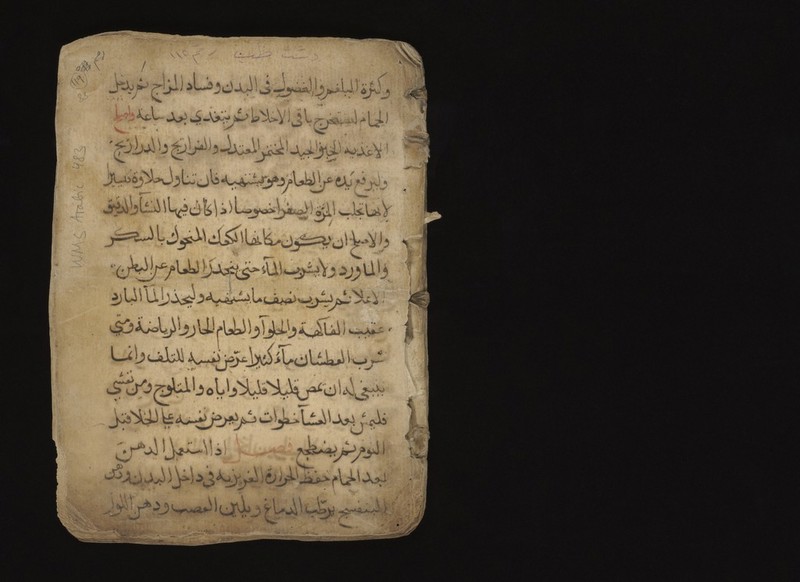 وكثرة البلغم والفضول فى البدن وفساد المزاج ثم يدخل
الحمام ليستفرغ باقى الاخلاط ثم يتغدى بعد ساعة واصلح
الاغذية الخبز الجيد المختمر المعتدل والفراريج والدراريج
وليرفع يده عن الطعام وهو يشتهيه فان تناول حلاوة فيسيرا
لانها تجلب المرة الصفرا خصوصا اذا كان فيها النشا والدقيق
والاصلح ان يكون مكانها الكعك المعجون بالسكر
والماورد ولا يشرب المآء حتى ينحدر الطعام عن البطن
الاعلا ثم يشرب نصف ما يشتهيه وليحذر المآ البارد
عقيب الفاكهة والحلوآ والطعام الحار والرياضة ومتى
شرب العطشان مآء كثيرا عرّض نفسه للتلف وانما
ينبغى له ان يمص قليلا قليلا واياه والمثلوج ومن تعشى
فليمش بعد العشآ خطوات ثم يعرض نفسه على الخلا قبل
النوم ثم يضطجع اذا استعمل الدهن
بعد الحمام حفظ الحرارة الغريزية فى داخل البدن ودهن
البنفسج يرطب الدماغ ويلين العصب ودهن اللوز
WMS Arabic 483